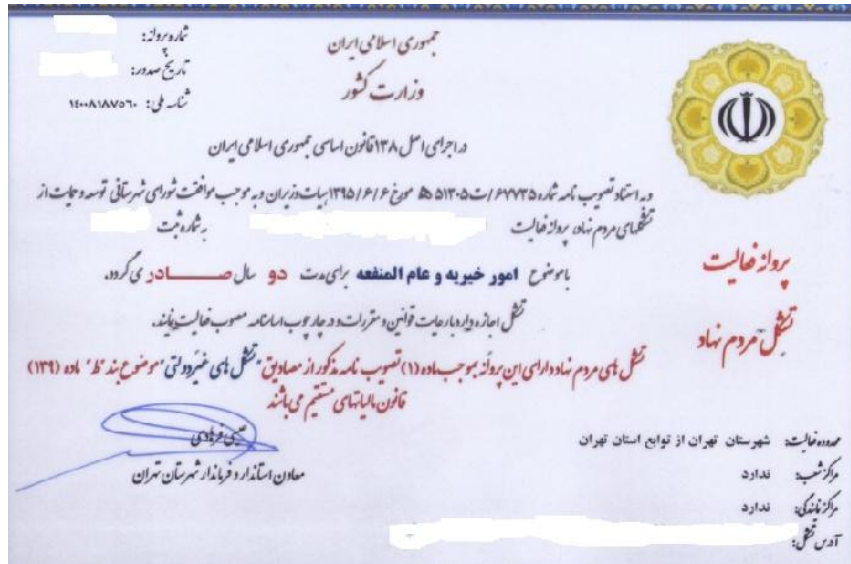 شماره پروانه:
تاریخ صدور:
شناسه ملی: ۱۴۰۰۸۱۸۷۵۶۰
جمهوری اسلامی ایران
وزارت کشور
در اجرای اصل ۱۳۸ قانون اساسی جمهوری اسلامی ایران
و به استناد تصویب نامه شماره ۶۷۷۳۵/ت۵۱۳۰۵ه مورخ ۱۳۹۵/۶/۶ هیات وزیران و به موجب موافقت شورای شهرستانی توسعه و حمایت از
تشکلهای مردم نهاد، پروانه فعالیت به شماره ثبت
با موضوع امور خیریه و عام المنفعه برای مدت دو سال صادر می گردد.
تشکل اجازه دارد با رعایت قوانین و مقررات و در چارچوب اساسنامه مصوب فعالیت نمایند.
تشکل های مردم نهاد دارای این پروانه بموجب ماده (۱) تصویب نامه مذکور از مصادیق "تشکل های غیردولتی" موضوع بند "ط" ماده (۱۳۹)
قانون مالیاتهای مستقیم می باشند
پروانه فعالیت
تشکل مردم نهاد
عیسی فرهادی
معاون استاندار و فرماندار شهرستان تهران
محدوده فعالیت: شهرستان تهران از توابع استان تهران
مراکز شعب: ندارد
مراکز نمایندگی: ندارد
آدرس تشکل: